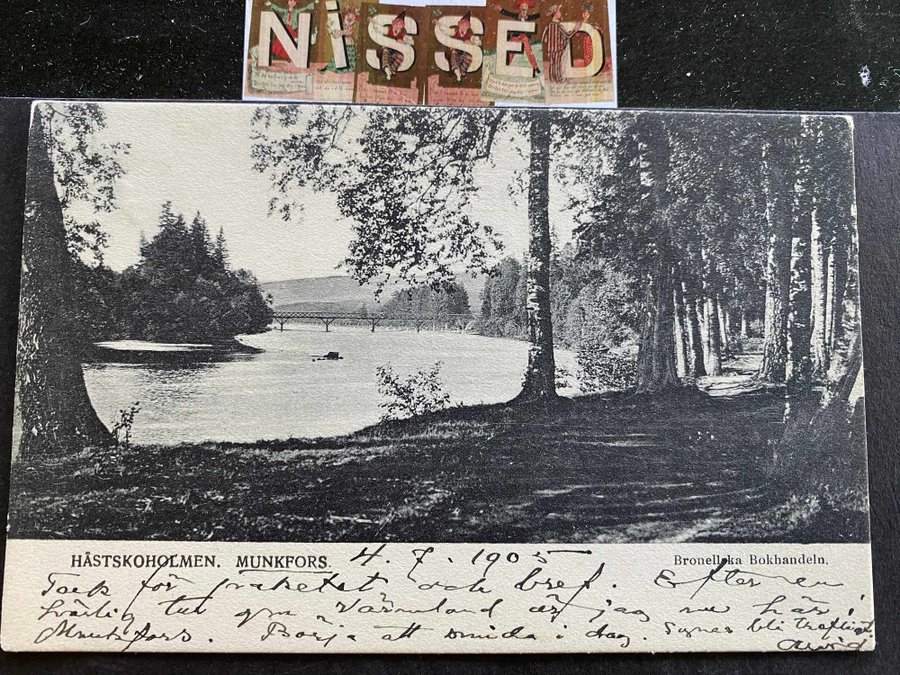 NiSSED
HÄSTSKOHOLMEN. MUNKFORS. 4.7.1905 Bronellska Bokhandeln.
Tack för paketet och bref. Efter en
härlig tur gm Värmland är jag nu här i
Munkfors. Börja att smida i dag. Synes bli trefligt.
Arvid